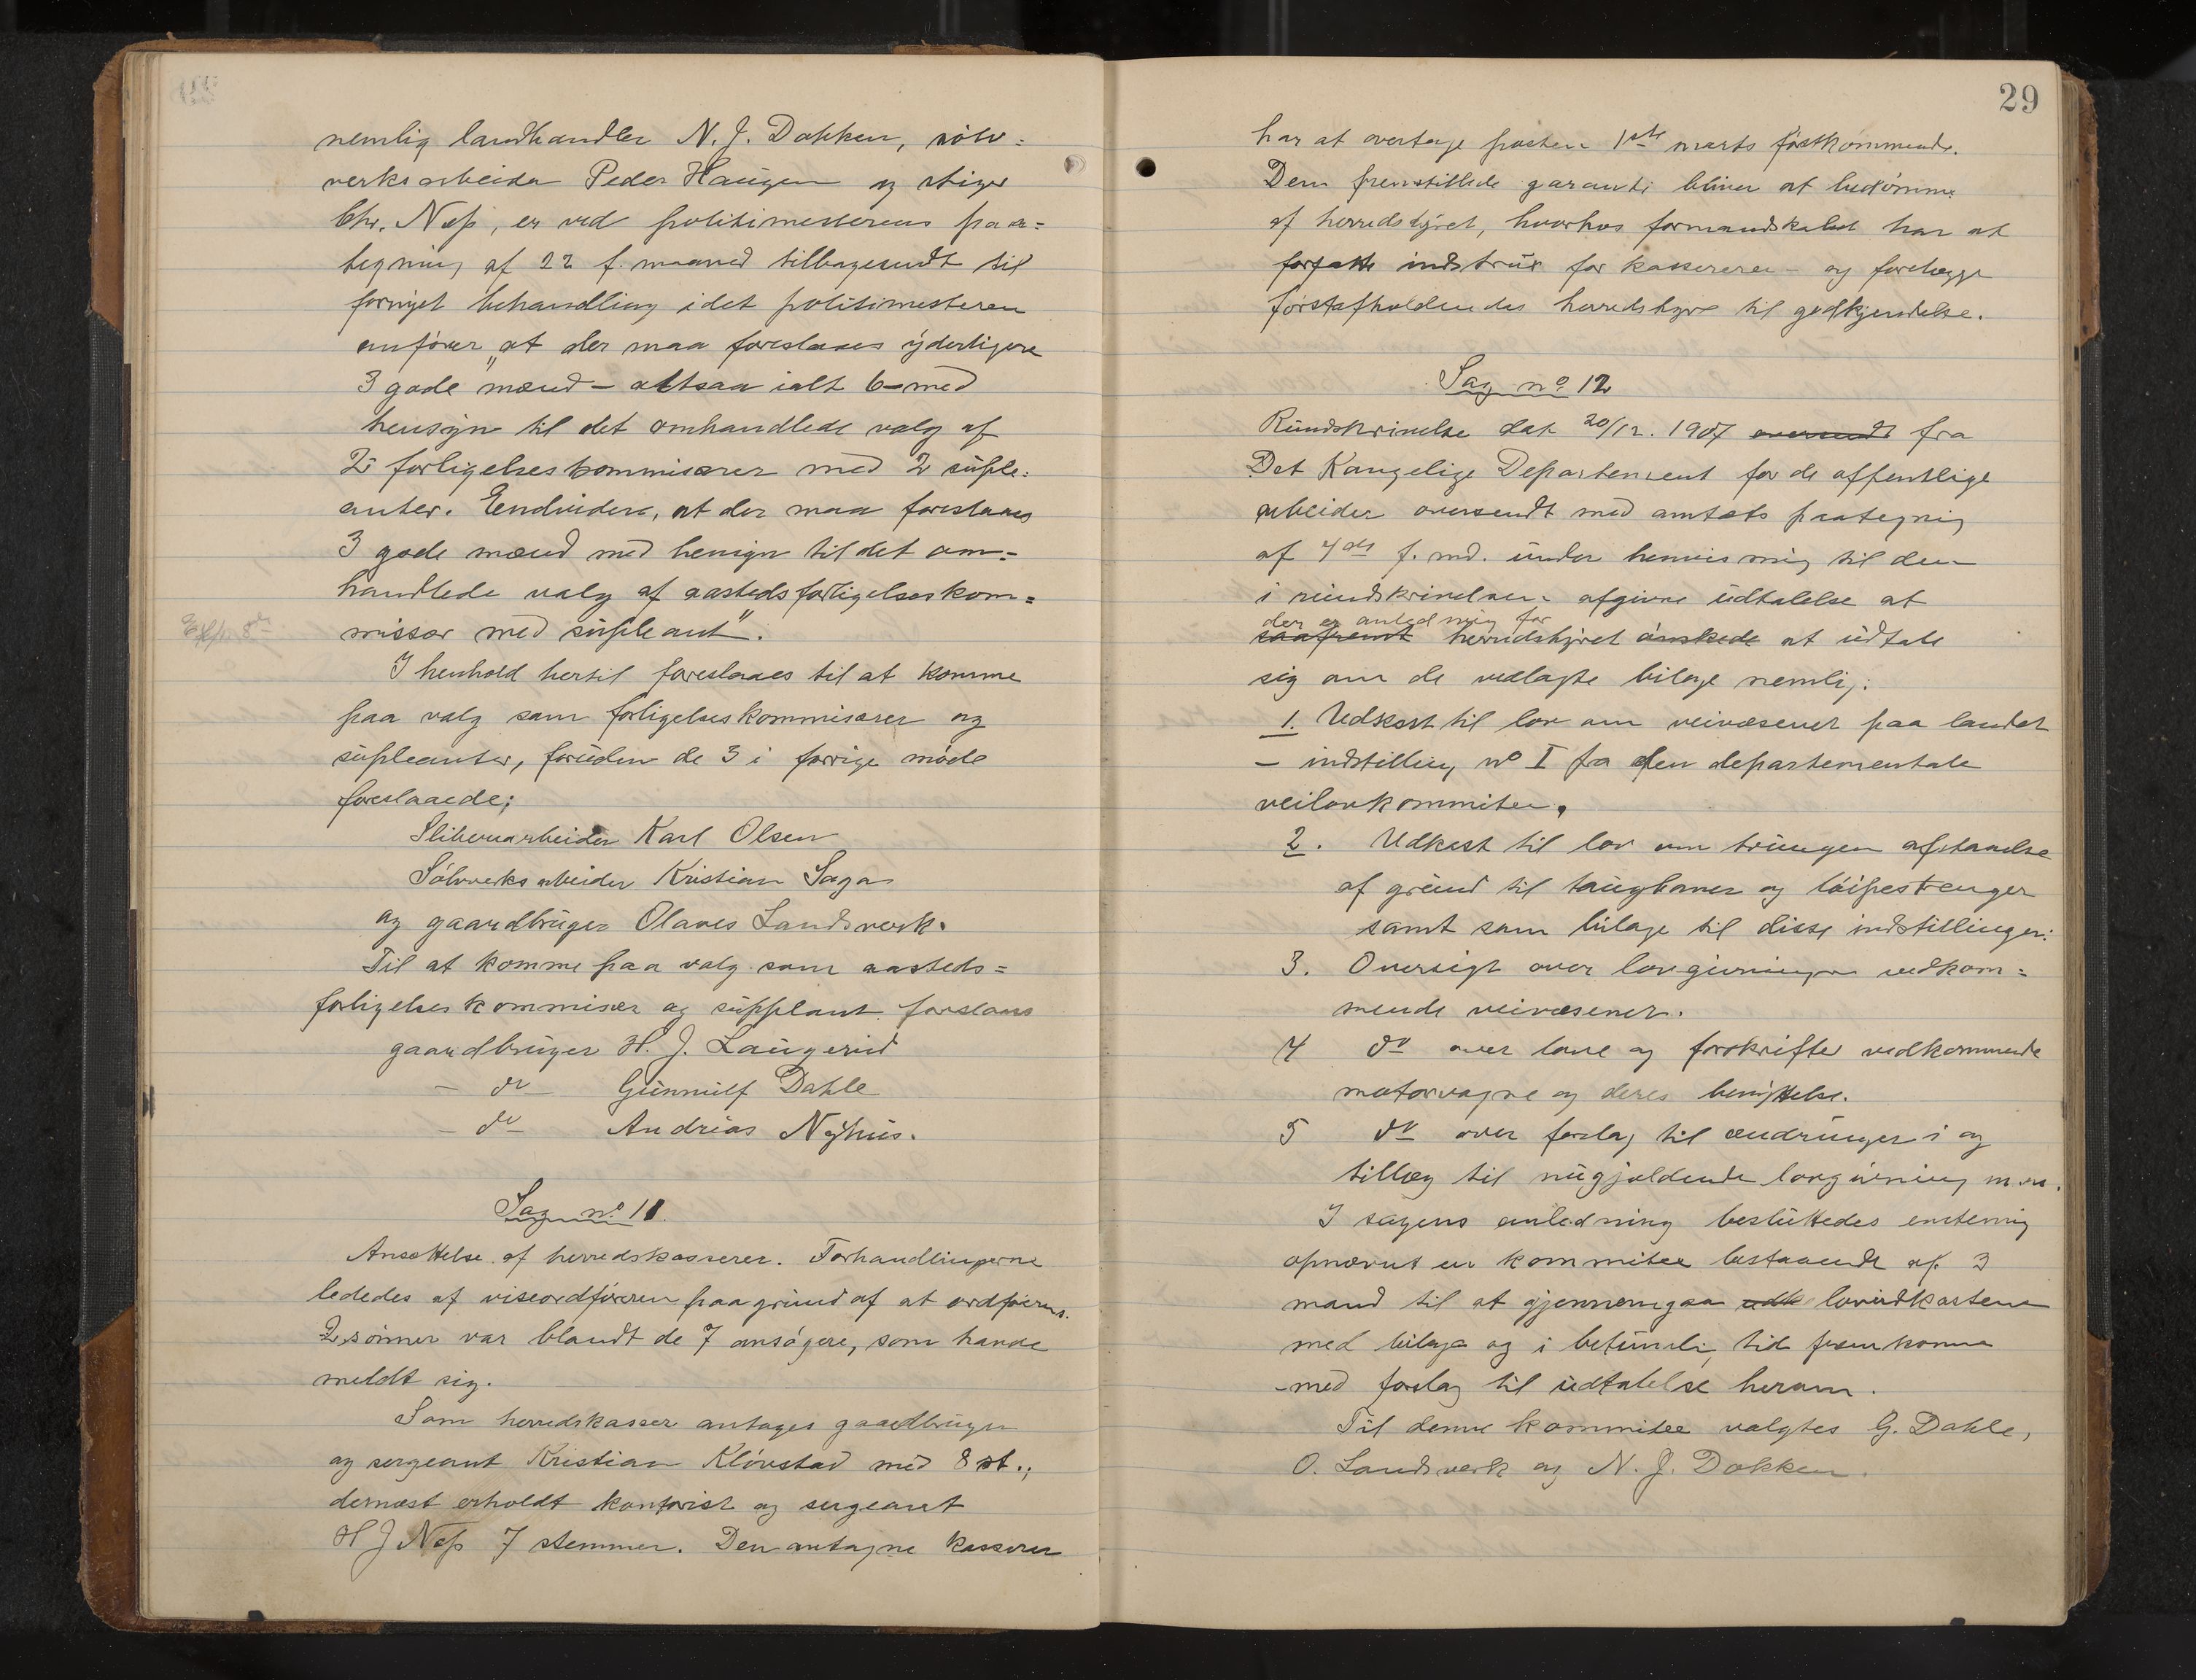 nemlig landhandler N. J. Dokken, sölv=
verksarbeider Peder Haugen og stiger
Chr. Næss, er ved politimesterens paa=
tegning af 22 f. maaned tilbagesendt til
fornyet behandling idet politimesteren
anförer "at der maa foreslaaes yderligere
3 gode mænd – altsaa ialt 6 – med
hensyn til det omhandlede valg af
2 forligelseskommisærer med 2 suple=
anter. Endvidere, at der maa foreslaaes
3 gode mænd med hensyn til det om=
handlede valg af aastedsforligelseskom=
Exp. 8de
missær med supleant".
I henhold hertil foreslaaes til at komme
paa valg som forligelseskommisærer og
supleanter, foruden de 3 i forrige möde
foreslaaede;
Sliberiarbeider Karl Olsen
Sölvverksarbeider Kristian Saga
og gaardbruger Olaves Landsverk.
Til at komme paa valg som aasteds=
forligelseskommisær og supplant foreslaaes
gaardbruger H. J. Laugerud
– do – Gunnulf Dahle
– do Andrias Nÿhus.
Sag no 11.
Ansættelse af herredskasserer. Forhandlingerne
lededes af viseordföreren paa grund af at ordförerens
2 sönner var blandt de 7 ansögere, som havde
meldt sig.
Som herredskasser antages gaardbruger
og sergeant Kristian Klövstad med 8 st.;
dernæst erholdt kontorist og sergeant
H J Næss 7 stemmer. Den antagne kasserer
29
har at overtage posten 1ste marts förstkommende.
Den fremstillede garanti bliver at bedömme
af herredstyret, hvorhos formandskabet har at
forfatte instrux for kassereren – og forelægge
förstafholdendes herredstyre til godkjendelse.
Sag no 12
Rundskrivelse dat 20/12. 1907 oversendt fra
Det Kongelige Departement for de offentlige
arbeider oversendt med amtets paategning
af 4de f. md. under henvisning til den
i rundskrivelsen afgivne udtalelse at
der er anledning for
saafremt herredstyret önskede at udtale
sig om de vedlagte bilage nemlig:
1. Udkast til lov om veivæsenet paa landet
– indstilling no I fra den departementale
veilovkommitee.
2. Udkast til lov om tvungen afstaaelse
af grund til taugbaner og löipestrenger
samt som bilage til disse indstillinger:
3. Oversigt over lovgivningen vedkom=
mende veivæsenet.
4 do over love og forskrifter vedkommende
motorvogne og deres benyttelse.
5 do over forslag til ændringer i og
tillæg til nugjældende lovgivning m.m.
I sagens anledning besluttedes enstemmig
opnævnt en kommitee bestaaende af 3
mand til at gjennemgaa udk lovudkastene
med bilage og i betimelig tid fremkomme
med forslag til udtalelse herom.
Til denne kommitee valgtes G. Dahle,
O. Landsverk og N. J. Dokken.